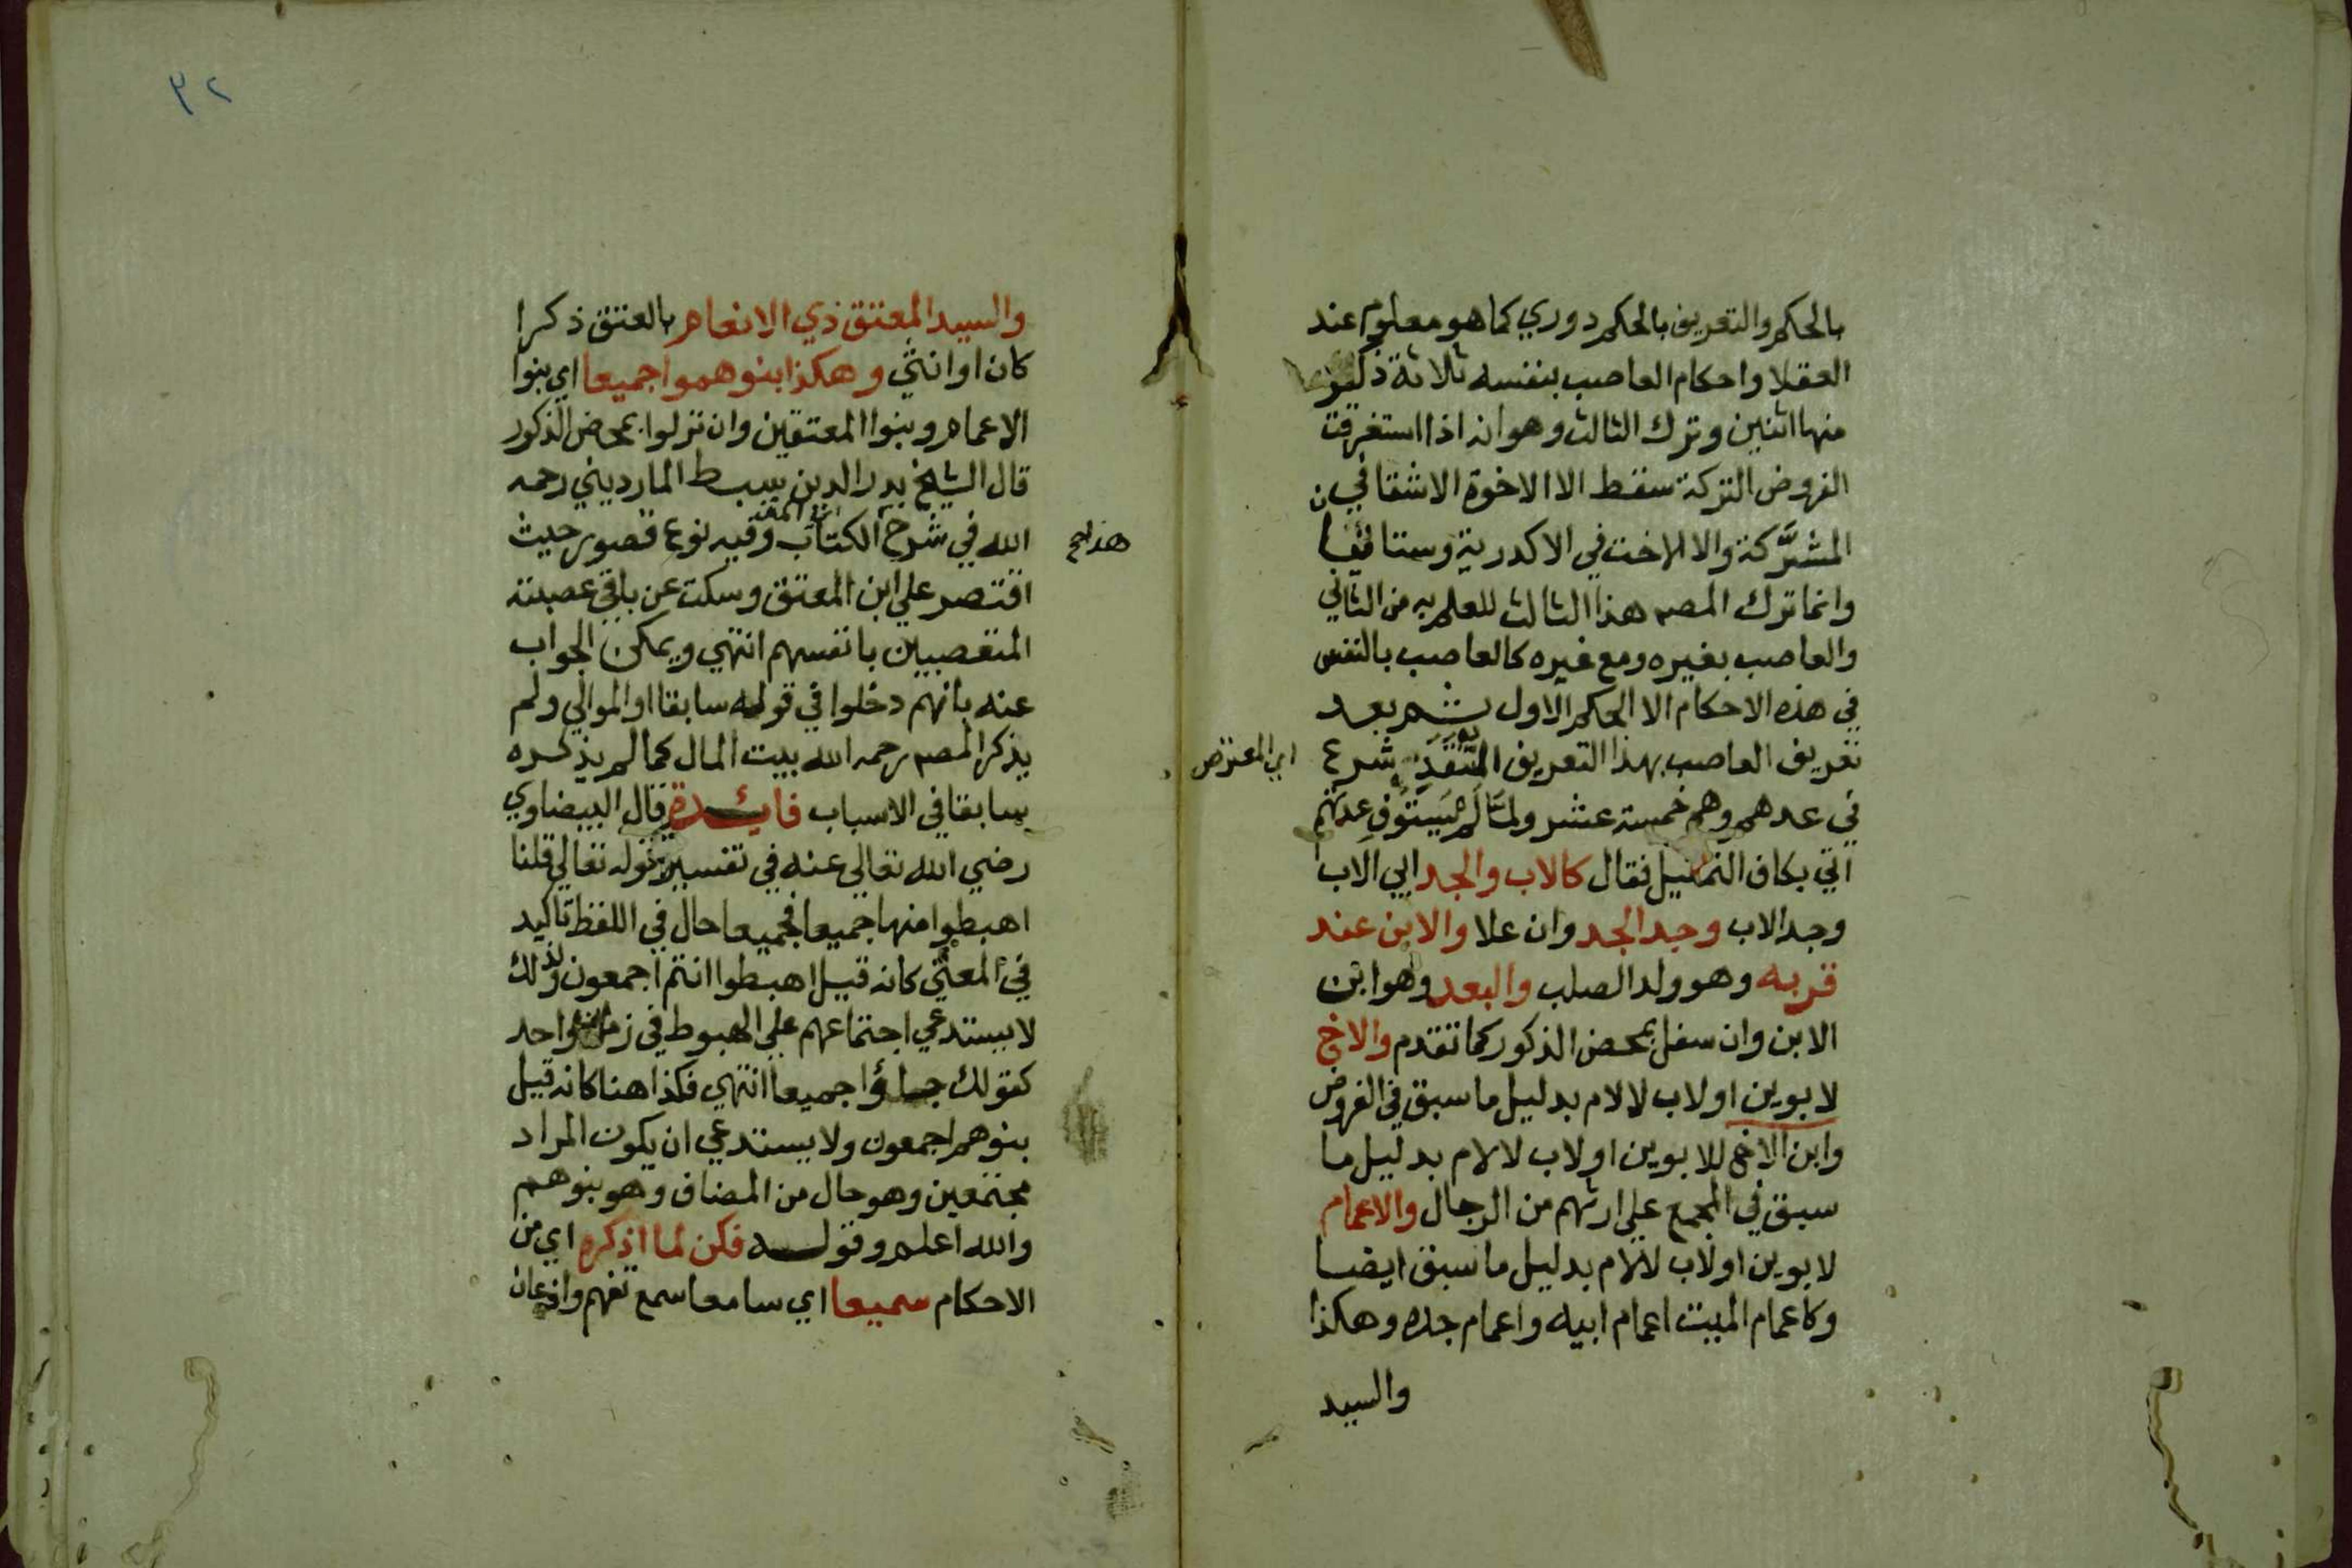 بالحكم والتعريف بالحكم دوري كما هو معلوم عند
العقلا واحكام العاصب بنفسه ثلاثة ذكر
منها اثنين وترك الثالث وهو انه اذا استغرقت
الفروض التركة سقط الا الاخوة الاشقا في
المشرَّكة والا الاخت في الاكدرية وستا
وانما ترك المصـ هذا الثالث للعلم به من الثاني
والعاصب بغيره ومع غيره كالعاصب بالنفس
في هذه الاحكام الا الحكم الاول ثم بعد
تعريف العاصب بهذا التعريف شرع
اي المعترض
في عدهم وهم خمسة عشر ولما لم يستوف عدتهم
اتي بكاف التمثيل فقال كالاب والجد ابي الاب
وجد الاب وجد الجد وان علا والابن عند
قربه وهو ولد الصلب والبعد وهو ابن
الابن وان سفل بمحض الذكور كما تقدم والاخ
لابوين او لاب لا لام بدليل ما سبق في الفروض
وابن الاخ للابوين او لاب لا لام بدليل ما
سبق في المجمع علي ارثهم من الرجال والاعمام
لابوين او لاب لا لام بدليل ما سبق ايضا
وكاعمام الميت اعمام ابيه واعمام جده وهكذا
والسيد
٣٢
والسيد المعتق ذي الانعام بالعتق ذكرا
كان او انثي وهكذا بنوهموا جميعا اي بنوا
الاعمام وبنوا المعتقين وان نزلوا بمحض الذكور
قال الشيخ بدر الدين سبط المارديني رحمه
الله في شرح الكتاب وفيه نوع قصور حيث
اقتصر علي ابن المعتق وسكت عن باقي عصبته
المتعصبين بانفسهم انتهي ويمكن الجواب
عنه بانهم دخلوا في قوله سابقا او الموالي ولم
يذكر المصـ رحمه الله بيت المال كما لم يذكره
سابقا في الاسباب فايدة قال البيضاوي
رضي الله تعالي عنه في تفسير قوله تعالي قلنا
اهبطوا منها جميعا فجميعا حال في اللفظ تاكيد
في المعني كانه قيل اهبطوا انتم اجمعون ولذلك
لا يستدعي اجتماعهم علي الهبوط في زمان واحد
كقولك جاؤا جميعا انتهي فكذا هنا كانه قيل
بنوهم اجمعون ولا يستدعي ان يكون المراد
مجتمعين وهو حال من المضاف وهو بنوهم
والله اعلم وقوله فكن لما اذكره اي من
الاحكام سميعا اي سامعا سمع تفهم واذعان